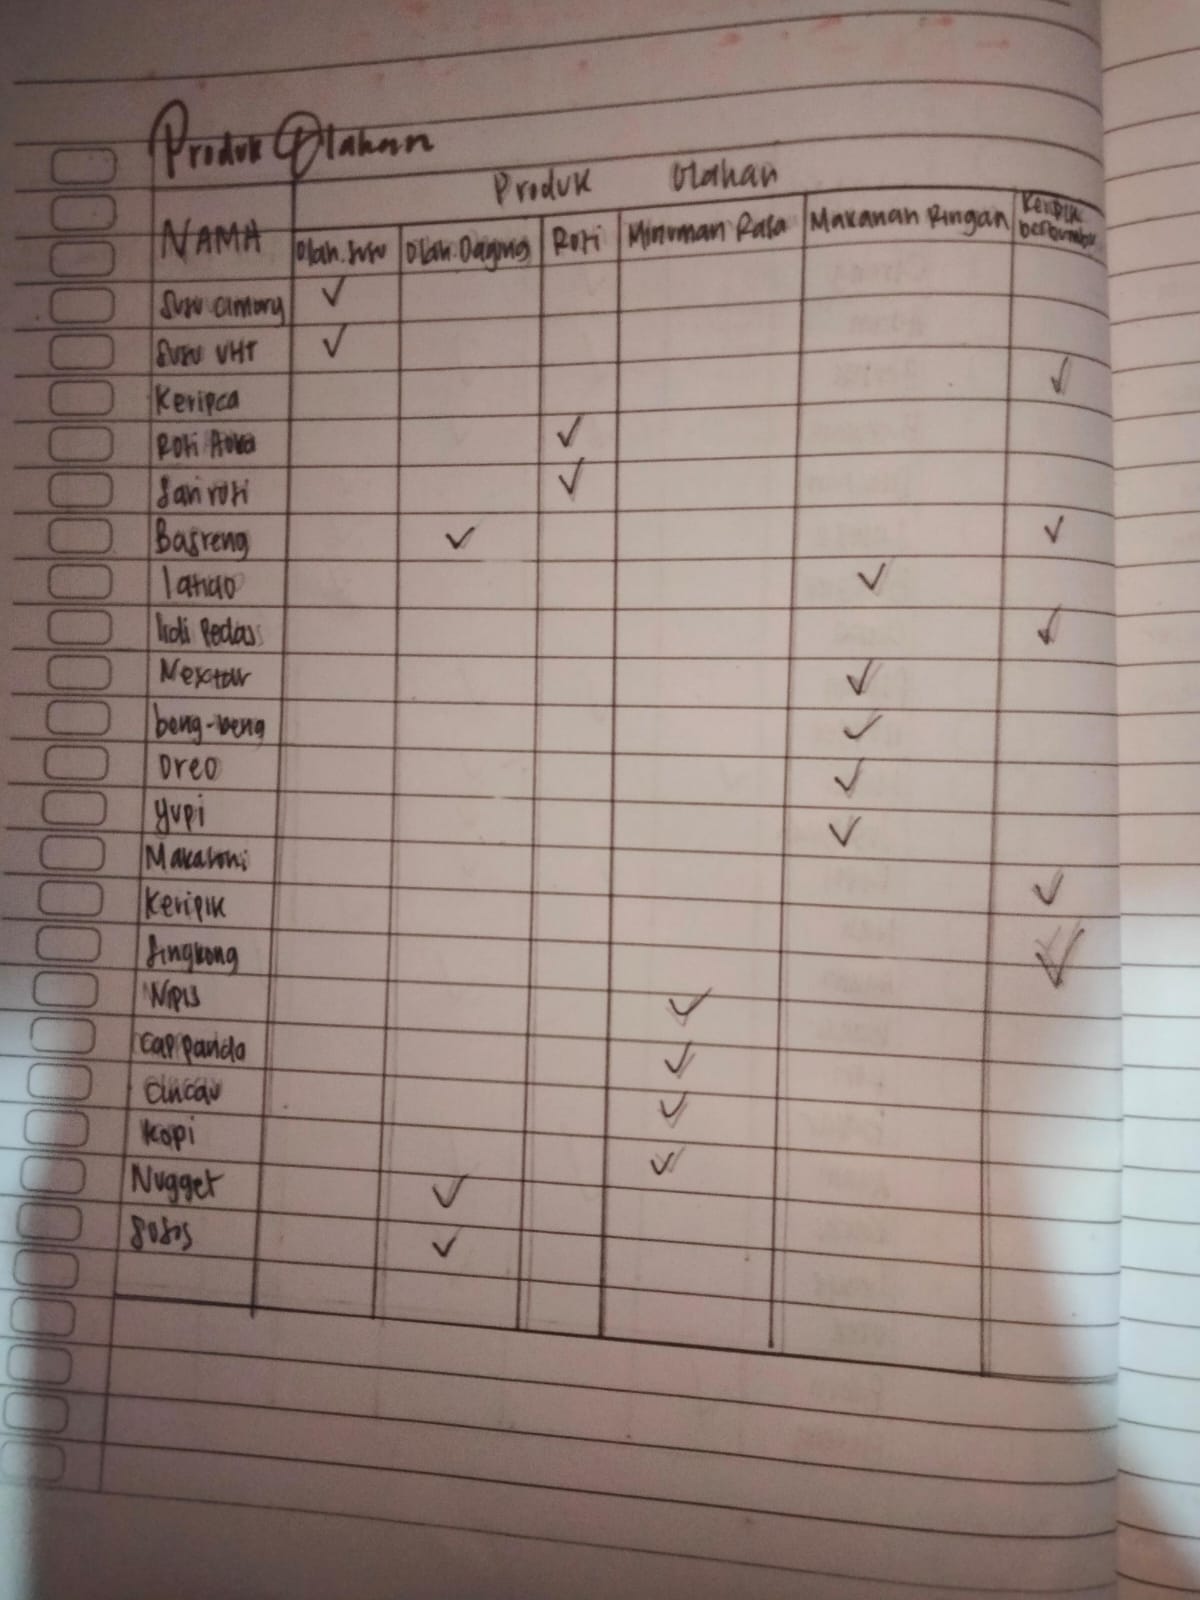 Produk Olahan
Produk Olahan
NAMA Olah.susu Olah.Daging Roti Minuman Rasa Makanan Ringan Keripik berbumbu
Susu cimory ✓
Susu UHT ✓
Keripca ✓
Roti Aoka ✓
Sari roti ✓
Basreng ✓ ✓
latiao ✓
Pedas ✓
✓
beng-beng ✓
Oreo ✓
Yupi ✓
Makaroni ✓
Keripik
Singkong ✓
✓
cap panda ✓
cincau ✓
Kopi ✓
Nugget ✓
Sosis ✓